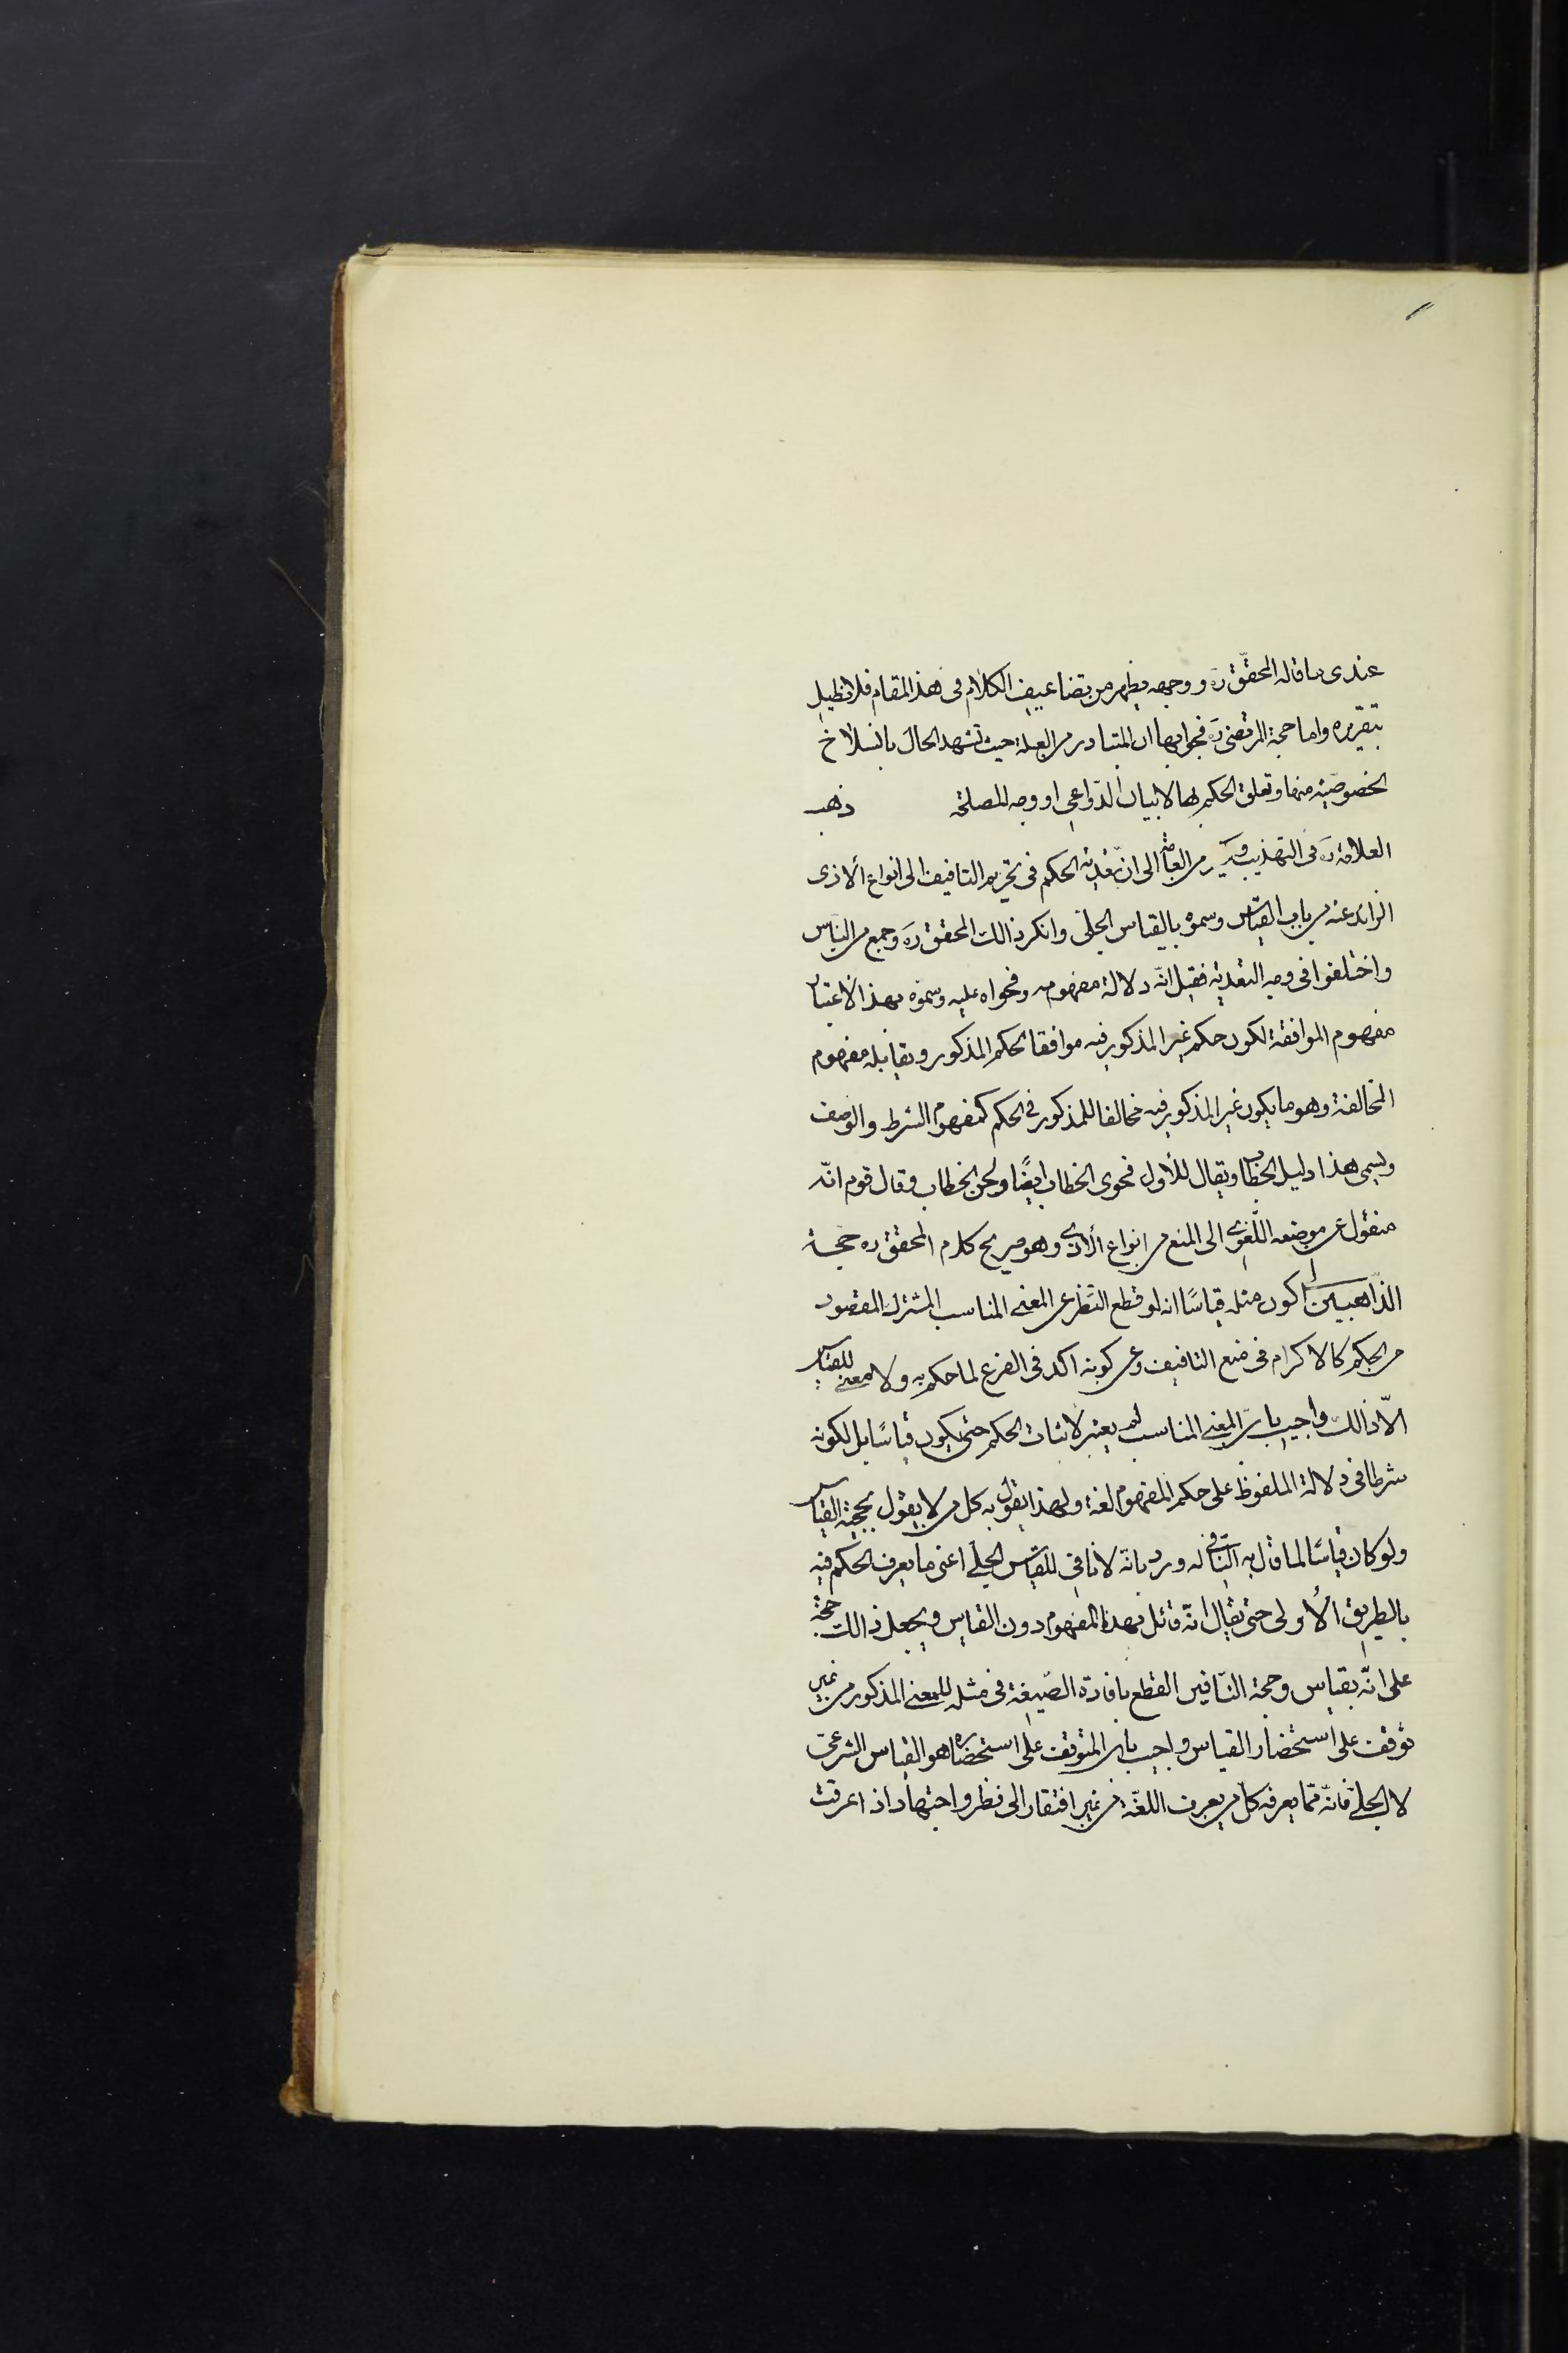 عندى ما قاله المحقّق رَه ووجهه يظهر من تضاعيف الكلام فى هذا المقام فلا نطيل
بتقريره واما حجة المرتضى رَه فجوابها ان المتبادر من العلة حيث تشهد الحال بانسلاخ
الخصوصيّة منها وتعلق الحكم بها لا بيان الدّواعى او وجه المصلحة ذهب
العلامة رَه فى التهذيب وكثير من العامّة الى ان تعدية الحكم فى تحريم التافيف الى انواع الاذى
الزائد عنه من باب القياس وسموه بالقياس الجلّى وانكر ذالك المحقق رَه وجمع من النّاس
واختلفوا فى وجه التعدية فقيل انّه دلالة مفهومه وفحواه عليه وسموه بهذا الاعتبار
مفهوم الموافقة لكون حكم غير المذكور فيه موافقا لحكم المذكور ويقابله مفهوم
المخالفة وهو ما يكون غير المذكور فيه مخالفا للمذكور فى الحكم كمفهوم الشرط والوصف
ويسمى هذا دليل الخطاب ويقال للأول فحوى الخطاب ايضًا ولحن الخطاب وقال قوم انّه
منقول عن موضعه اللّغوى الى المنع من انواع الأذى وهو صريح كلام المحقق ره حجة
الذّاهبين الى كون مثله قياسًا انه لو قطع النظر عن المعنى المناسب المشترك المقصود
من الحكم كالاكرام فى منع التافيف وعن كونه اكد فى الفرع لما حكم به ولا معنى للقياس
الّا ذالك واجيب بان المعنى المناسب لم يعتبر لاثبات الحكم حتى يكون قياسًا بل لكونه
شرطا فى دلالة الملفوظ على حكم المفهوم لغة ولهذا يقول به كل من لا يقول بحجية القياس
ولو كان قياسًا لما قال به النّافى له ورد بانه لا نافى للقياس الجلى اعنى ما يعرف الحكم فيه
بالطريق الأولى حتى يقال انّه قائل بهذا المفهوم دون القياس ويجعل ذالك حجة
على انّه بقياس وحجة النافين القطع بافادة الصّيغة فى مثله للمعنى المذكور من غير
توقف على استحضار القياس واجيب بان المتوقف على استحضاره هو القياس الشرعى
لا الجلى فانّه ممّا يعرفه كل من يعرف اللغة من غير افتقار الى نظر واجتهاد اذا عرفت